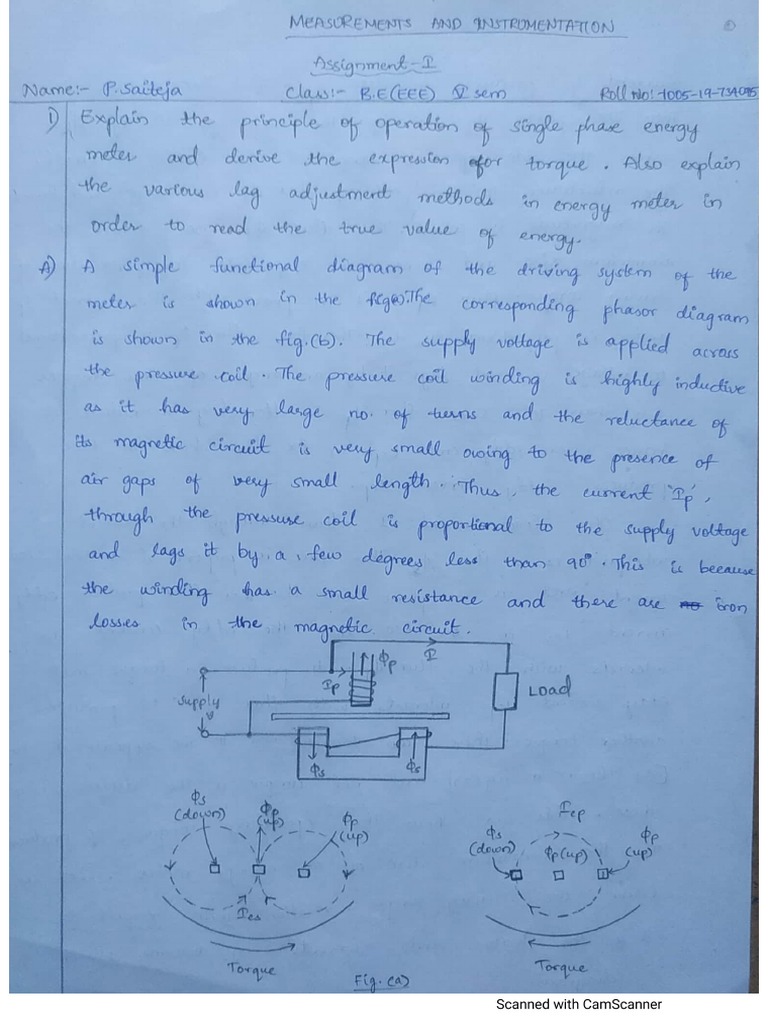 MEASUREMENTS AND INSTRUMENTATION
Assignment-I
Name:- P.Saiteja Class:- B.E(EEE) V sem Roll No: 1005-19-734095
1) Explain the principle of operation of single phase energy
meter and derive the expression for torque. Also explain
the various lag adjustment methods in energy meter in
order to read the true value of energy.
A) A simple functional diagram of the driving system of the
meter is shown in the fig(a). The corresponding phasor diagram
is shown in the fig.(b). The supply voltage is applied across
the pressure coil. The pressure coil winding is highly inductive
as it has very large no. of turns and the reluctance of
its magnetic circuit is very small owing to the presence of
air gaps of very small length. Thus, the current 'Ip',
through the pressure coil is proportional to the supply voltage
and lags it by a few degrees less than 90°. This is because
the winding has a small resistance and there are iron
losses in the magnetic circuit.
ϕp I
Ip
Supply
V
Load
ϕs ϕs
ϕs
(down)
ϕp
(up)
ϕp
(up)
Ies
Torque
Iep
ϕs
(down)
ϕp(up)
ϕp
(up)
Torque
Fig.(a)
Scanned with CamScanner